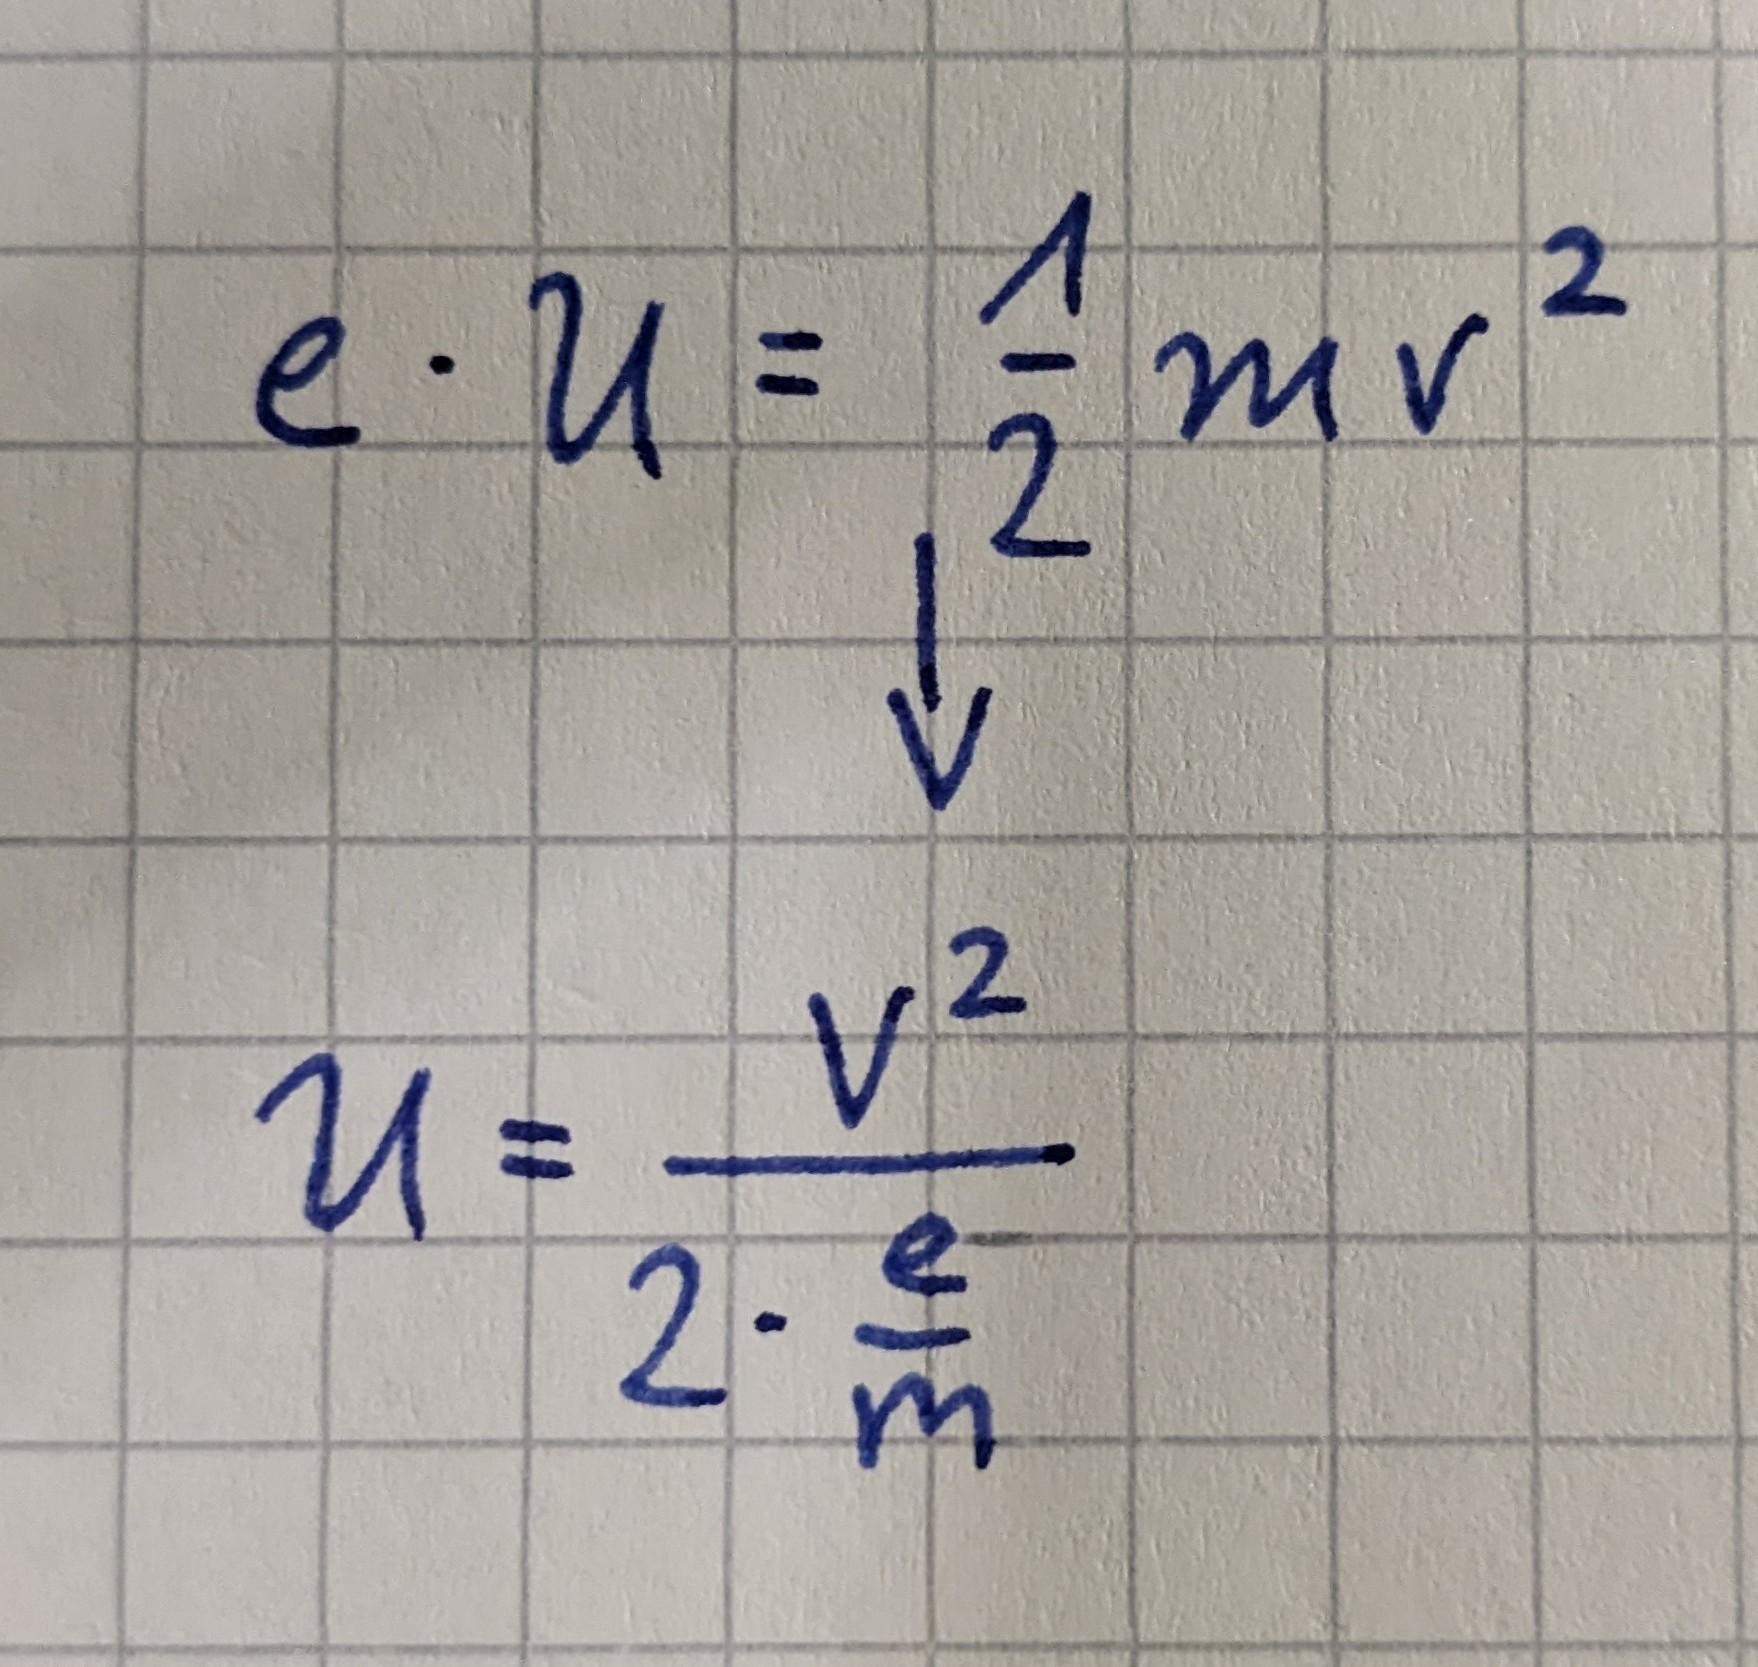 e · U = 1/2 mv²
↓
U = v² / (2 · e/m)